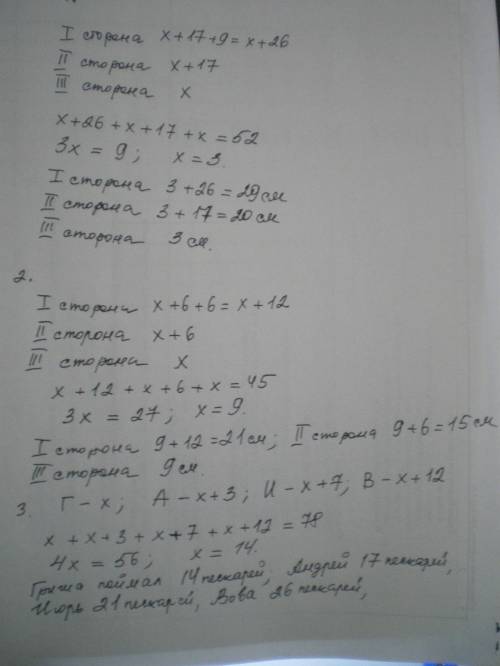 I сторона x+17+9=x+26
II сторона x+17
III сторона x
x+26+x+17+x=52
3x = 9; x=3.
I сторона 3+26=29см
II сторона 3+17=20см
III сторона 3см.
2.
I сторона x+6+6=x+12
II сторона x+6
III сторона x
x+12+x+6+x=45
3x = 27; x=9.
I сторона 9+12=21см; II сторона 9+6=15см
III сторона 9см.
3. Г-x; А-x+3; И-x+7; В-x+12
x+x+3+x+7+x+12=78
4x=56; x=14.
Гриша поймал 14 пескарей, Андрей 17 пескарей,
Игорь 21 пескарей, Вова 26 пескарей,